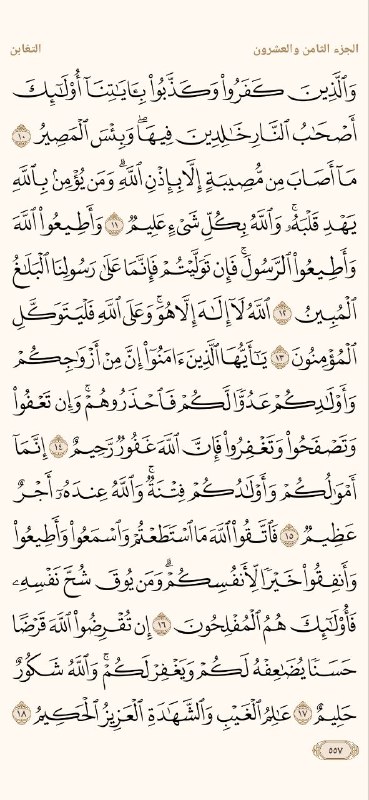 الجزء الثامن والعشرون
التغابن
وَٱلَّذِينَ كَفَرُوا۟ وَكَذَّبُوا۟ بِـَٔايَـٰتِنَآ أُو۟لَـٰٓئِكَ
أَصْحَـٰبُ ٱلنَّارِ خَـٰلِدِينَ فِيهَا ۖ وَبِئْسَ ٱلْمَصِيرُ ١٠
مَآ أَصَابَ مِن مُّصِيبَةٍ إِلَّا بِإِذْنِ ٱللَّهِ ۗ وَمَن يُؤْمِنۢ بِٱللَّهِ
يَهْدِ قَلْبَهُۥ ۚ وَٱللَّهُ بِكُلِّ شَىْءٍ عَلِيمٌ ١١ وَأَطِيعُوا۟ ٱللَّهَ
وَأَطِيعُوا۟ ٱلرَّسُولَ ۚ فَإِن تَوَلَّيْتُمْ فَإِنَّمَا عَلَىٰ رَسُولِنَا ٱلْبَلَـٰغُ
ٱلْمُبِينُ ١٢ ٱللَّهُ لَآ إِلَـٰهَ إِلَّا هُوَ ۚ وَعَلَى ٱللَّهِ فَلْيَتَوَكَّلِ
ٱلْمُؤْمِنُونَ ١٣ يَـٰٓأَيُّهَا ٱلَّذِينَ ءَامَنُوٓا۟ إِنَّ مِنْ أَزْوَٰجِكُمْ
وَأَوْلَـٰدِكُمْ عَدُوًّا لَّكُمْ فَٱحْذَرُوهُمْ ۚ وَإِن تَعْفُوا۟
وَتَصْفَحُوا۟ وَتَغْفِرُوا۟ فَإِنَّ ٱللَّهَ غَفُورٌ رَّحِيمٌ ١٤ إِنَّمَآ
أَمْوَٰلُكُمْ وَأَوْلَـٰدُكُمْ فِتْنَةٌ ۚ وَٱللَّهُ عِندَهُۥٓ أَجْرٌ
عَظِيمٌ ١٥ فَٱتَّقُوا۟ ٱللَّهَ مَا ٱسْتَطَعْتُمْ وَٱسْمَعُوا۟ وَأَطِيعُوا۟
وَأَنفِقُوا۟ خَيْرًا لِّأَنفُسِكُمْ ۗ وَمَن يُوقَ شُحَّ نَفْسِهِۦ
فَأُو۟لَـٰٓئِكَ هُمُ ٱلْمُفْلِحُونَ ١٦ إِن تُقْرِضُوا۟ ٱللَّهَ قَرْضًا
حَسَنًا يُضَـٰعِفْهُ لَكُمْ وَيَغْفِرْ لَكُمْ ۚ وَٱللَّهُ شَكُورٌ
حَلِيمٌ ١٧ عَـٰلِمُ ٱلْغَيْبِ وَٱلشَّهَـٰدَةِ ٱلْعَزِيزُ ٱلْحَكِيمُ ١٨
٥٥٧